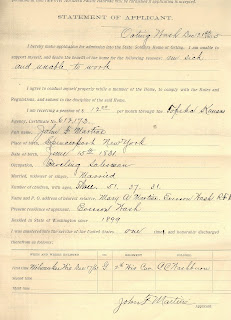 STATEMENT OF APPLICANT.
Orting Wash Dec
I hereby make application for admission into the State Soldiers Home at Orting. I am unable to
support myself, and desire the benefit of the home for the following reasons: am sick
and unable to work
I agree to conduct myself properly while a member of the Home, to comply with the Rules and
Regulations, and submit to the discipline of the said Home.
I am receiving a pension of $ 12.00 per month through the Topeka Kansas
Agency, Certificate No. 618,173
Name John F Martin
Place of birth New York
Date of birth June 15th 1831
Occupation Traveling Salesman
Married, widower or single Married
Number of children, with ages, Three 51. 37. 31
Name and P. O. address of nearest relative Mary A Martin Wash
Present residence of applicant Wash
Settled in State of Washington since 1899
I was enlisted in the service of the United States one time and honorably discharged
therefrom as follows:
Wis Dec G 3d Wis Cav
John F Martin
Applicant